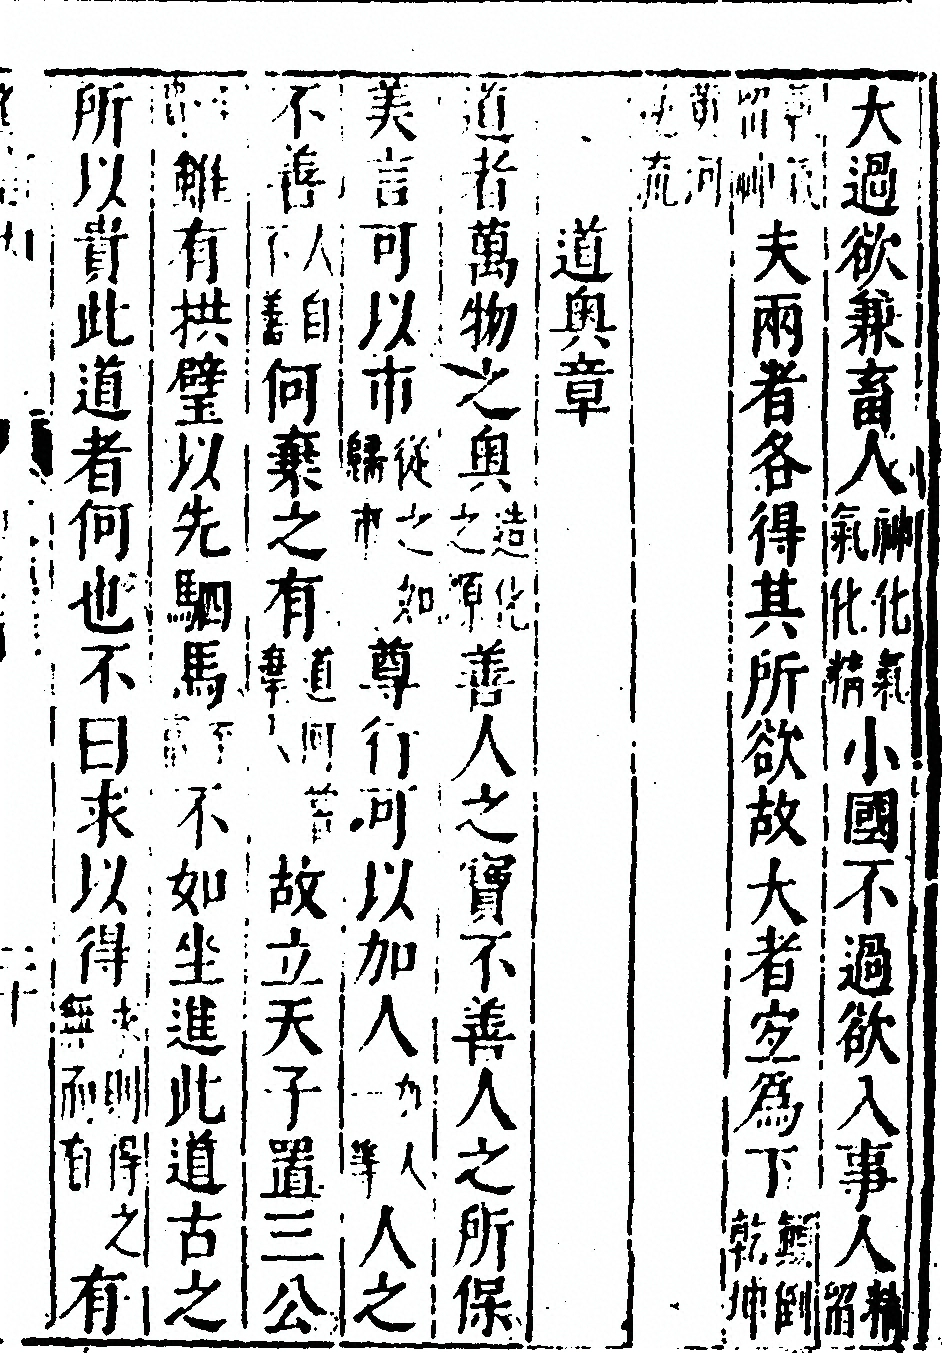 大過欲兼畜人神化氣氣化精小國不過欲入事人精留
氣留神夫兩者各得其所欲故大者宐爲下顛倒乾坤
黃河逆流
道奥章
道者萬物之奥造化之源善人之寶不善人之所保
美言可以市從之如歸市尊行可以加人加人一等人之
不善人自不善何棄之有道何嘗棄人故立天子置三公
雖有拱璧以先駟馬不不如坐進此道古之
所以貴此道者何也不曰求以得求則得之無不有有